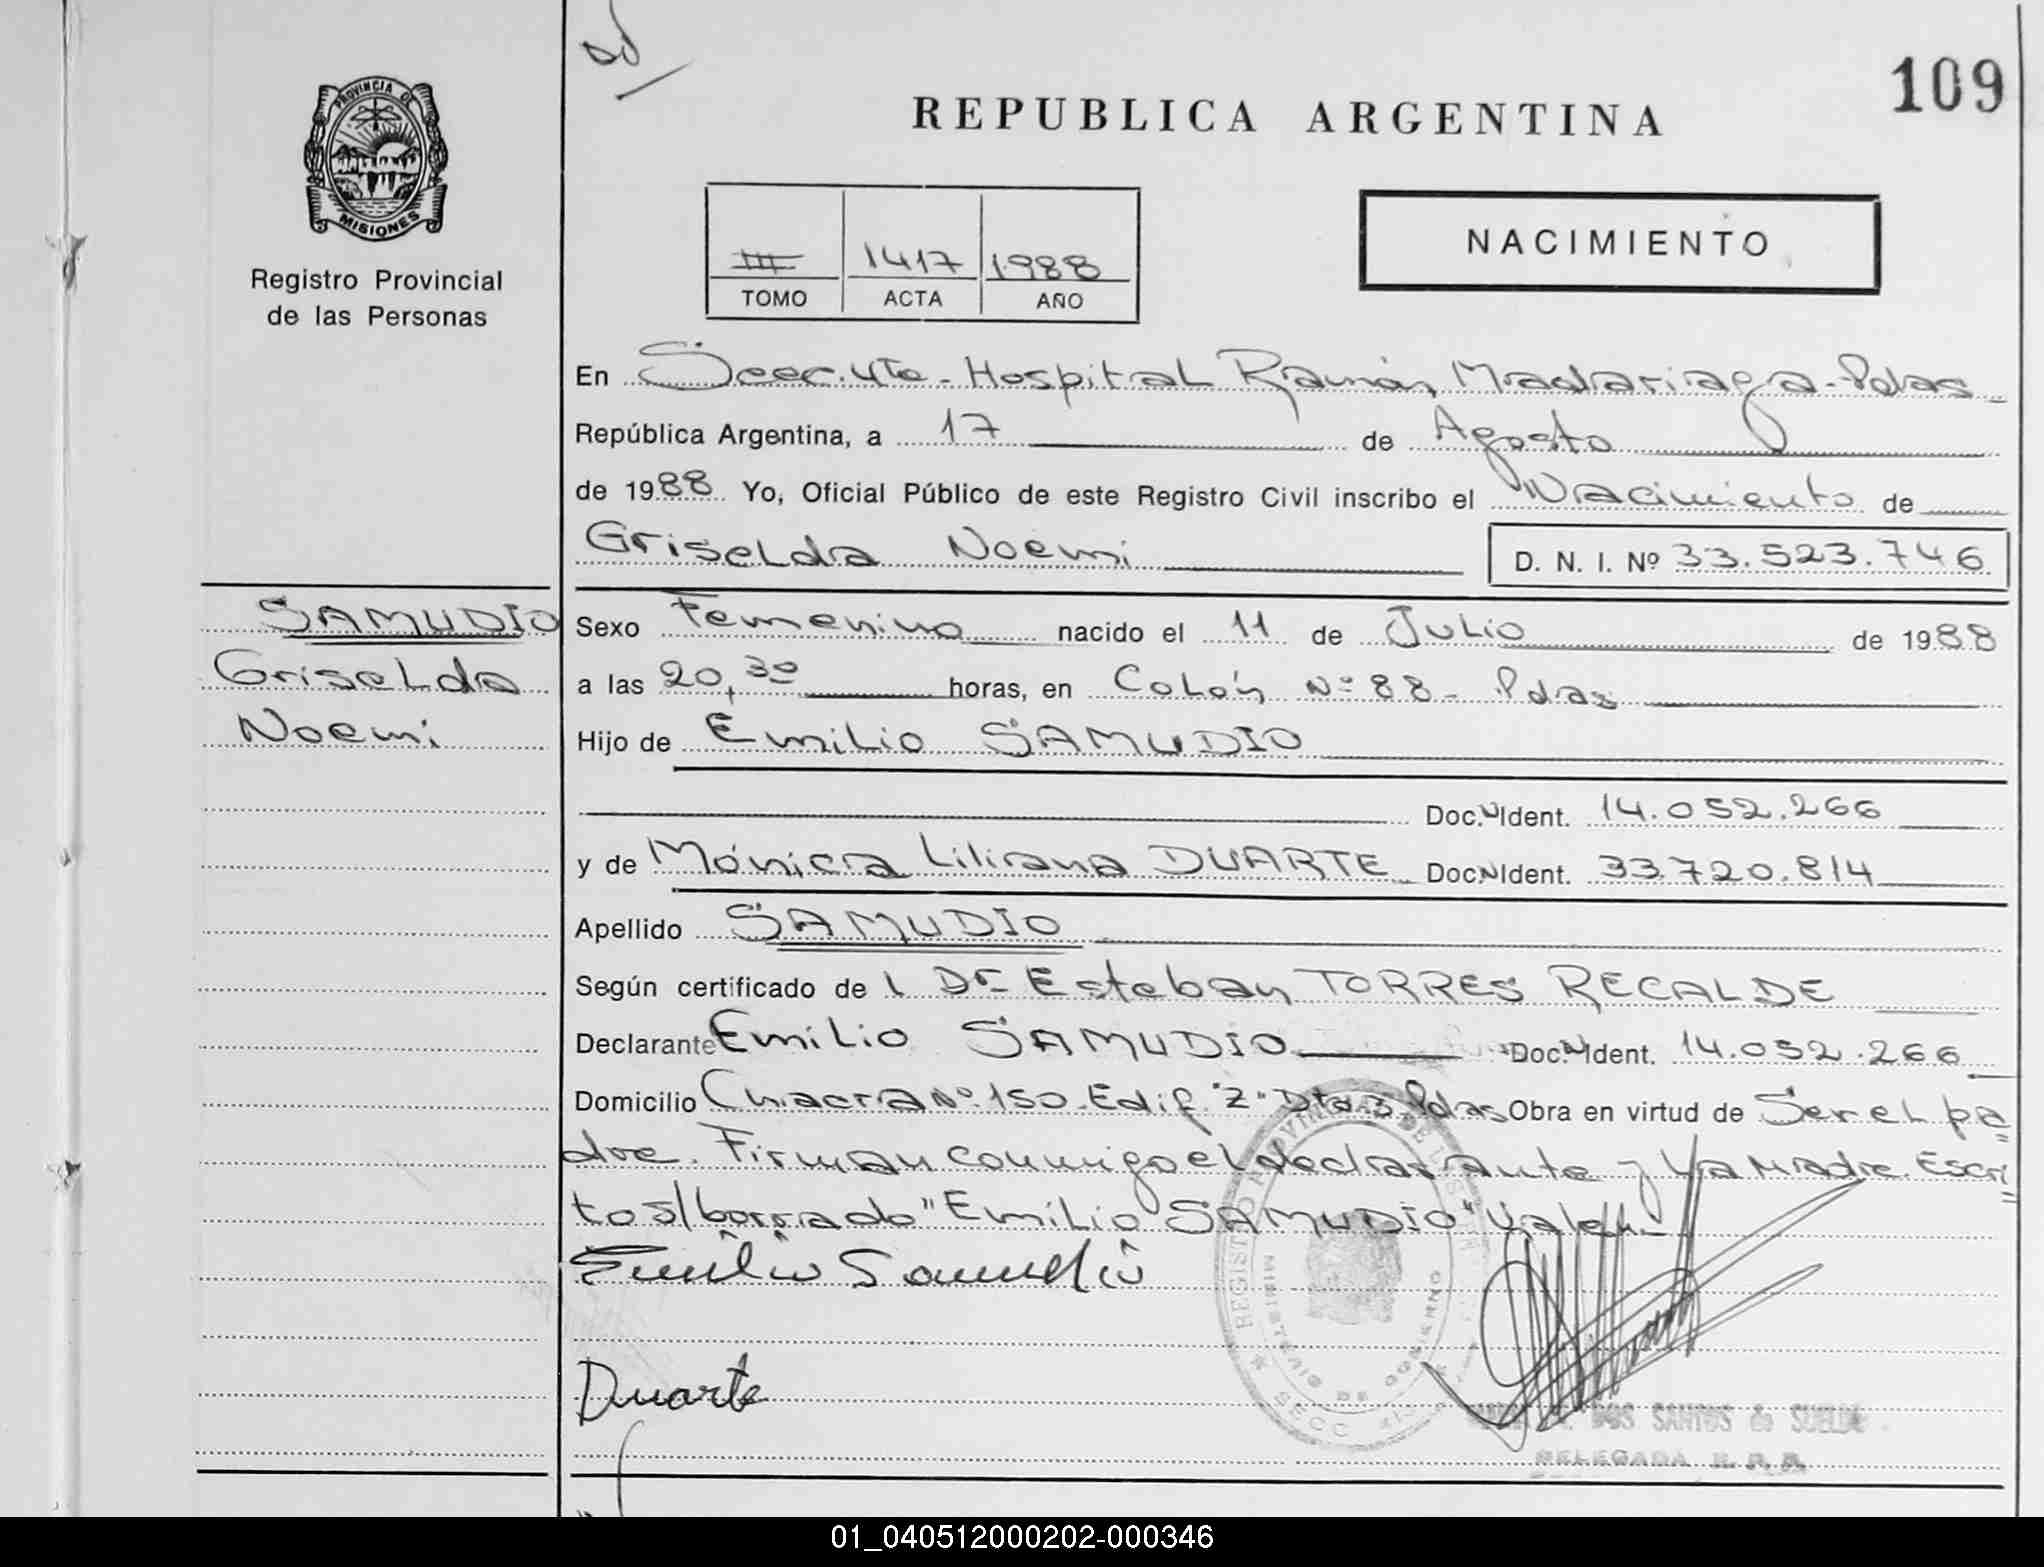 109
REPUBLICA ARGENTINA
PROVINCIA DE
MISIONES
Registro Provincial
de las Personas
III 1417 1988
TOMO ACTA AÑO
NACIMIENTO
En Secc. 4ta - Hospital Ramón Madariaga - Pdas
República Argentina, a 17 de Agosto
de 1988 Yo, Oficial Público de este Registro Civil inscribo el Nacimiento de
Griselda Noemi D. N. I. Nº 33.523.746
SAMUDIO
Griselda
Noemi
Sexo Femenino nacido el 11 de Julio de 1988
a las 20,30 horas, en Colón Nº 88 - Pdas
Hijo de Emilio SAMUDIO
Doc. N Ident. 14.052.266
y de Mónica Liliana DUARTE Doc. N Ident. 33.720.814
Apellido SAMUDIO
Según certificado de l Dr Esteban TORRES RECALDE
Declarante Emilio SAMUDIO Doc. N Ident. 14.052.266
Domicilio Chacra Nº 150 - Edif. "Z" Dto 3 Pdas Obra en virtud de Ser el pa
dre. Firman conmigo el declarante y la Madre. Escri
to s/borrado "Emilio SAMUDIO" Vale.
Emilio Samudio
Duarte
REGISTRO PROVINCIAL DE LAS
MINISTERIO DE GOBIERNO
SECC
DOS SANTOS de SUELDO
DELEGADA R. P. P.
01_040512000202-000346